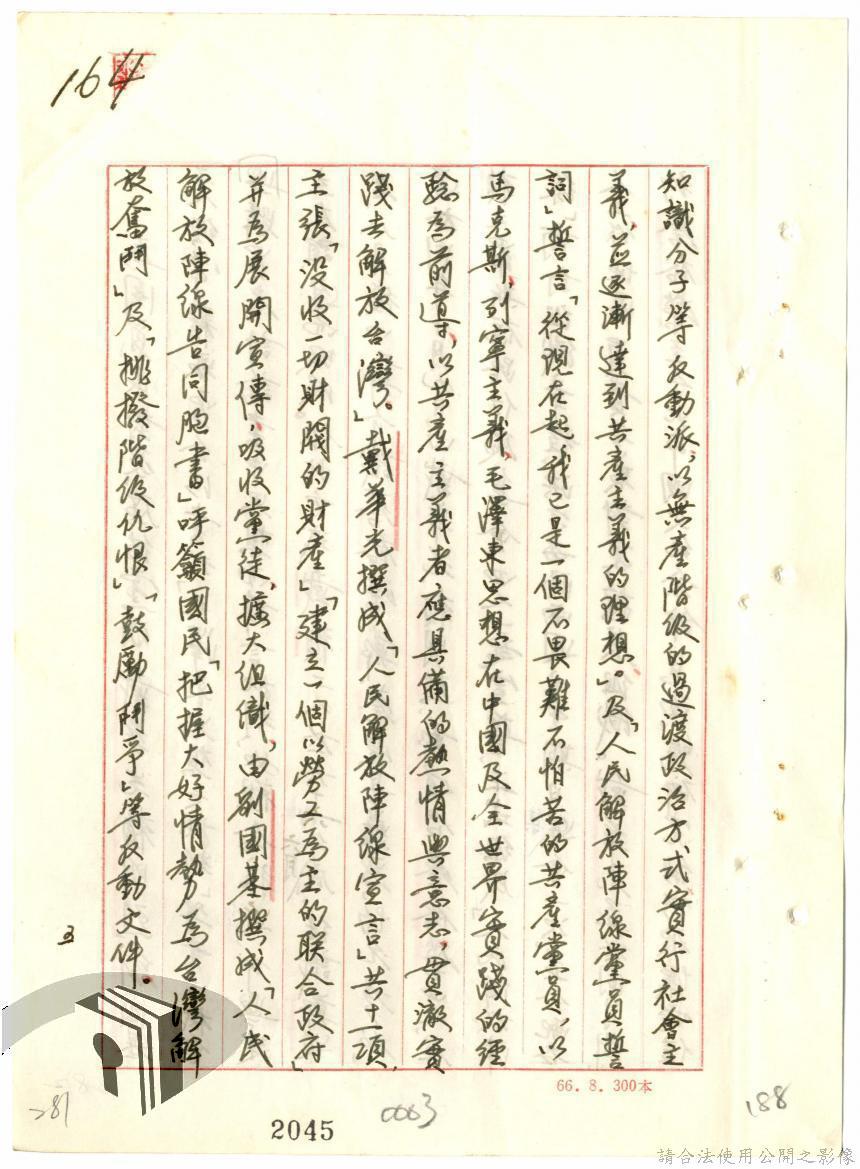 164
知識分子等反動派,以無產階級的過渡政治方式實行社會主
義,並逐漸達到共產主義的理想。」及「人民解放陣線黨員誓
詞」誓言「從現在起,我已是一個不畏難不怕苦的共產黨員,以
馬克斯,列寧主義,毛澤東思想在中國及全世界實踐的經
驗為前導,以共產主義者應具備的熱情與意志,貫澈實
踐去解放台灣。」戴華光撰成「人民解放陣線宣言」共十一項,
主張「沒收一切財閥的財產」「建立一個以勞工為主的聯合政府」
并為展開宣傳,吸收黨徒,擴大組織,由劉國基撰成「人民
解放陣線告同胞書」呼籲國民「把握大好情勢為台灣解
放奮鬥」及「挑撥階級仇恨」「鼓勵鬥爭」等反動文件。
3
66.8.300本
281
2045
0003
188
請合法使用公開之影像